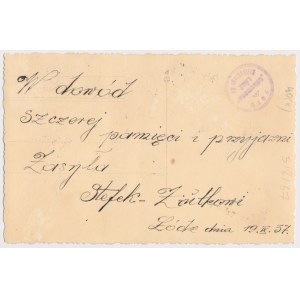 W dowód
szczerej pamięci i przyjaźni
Zasyła
Stefek - Ziutkowi
Łódź dnia 19.X.37.